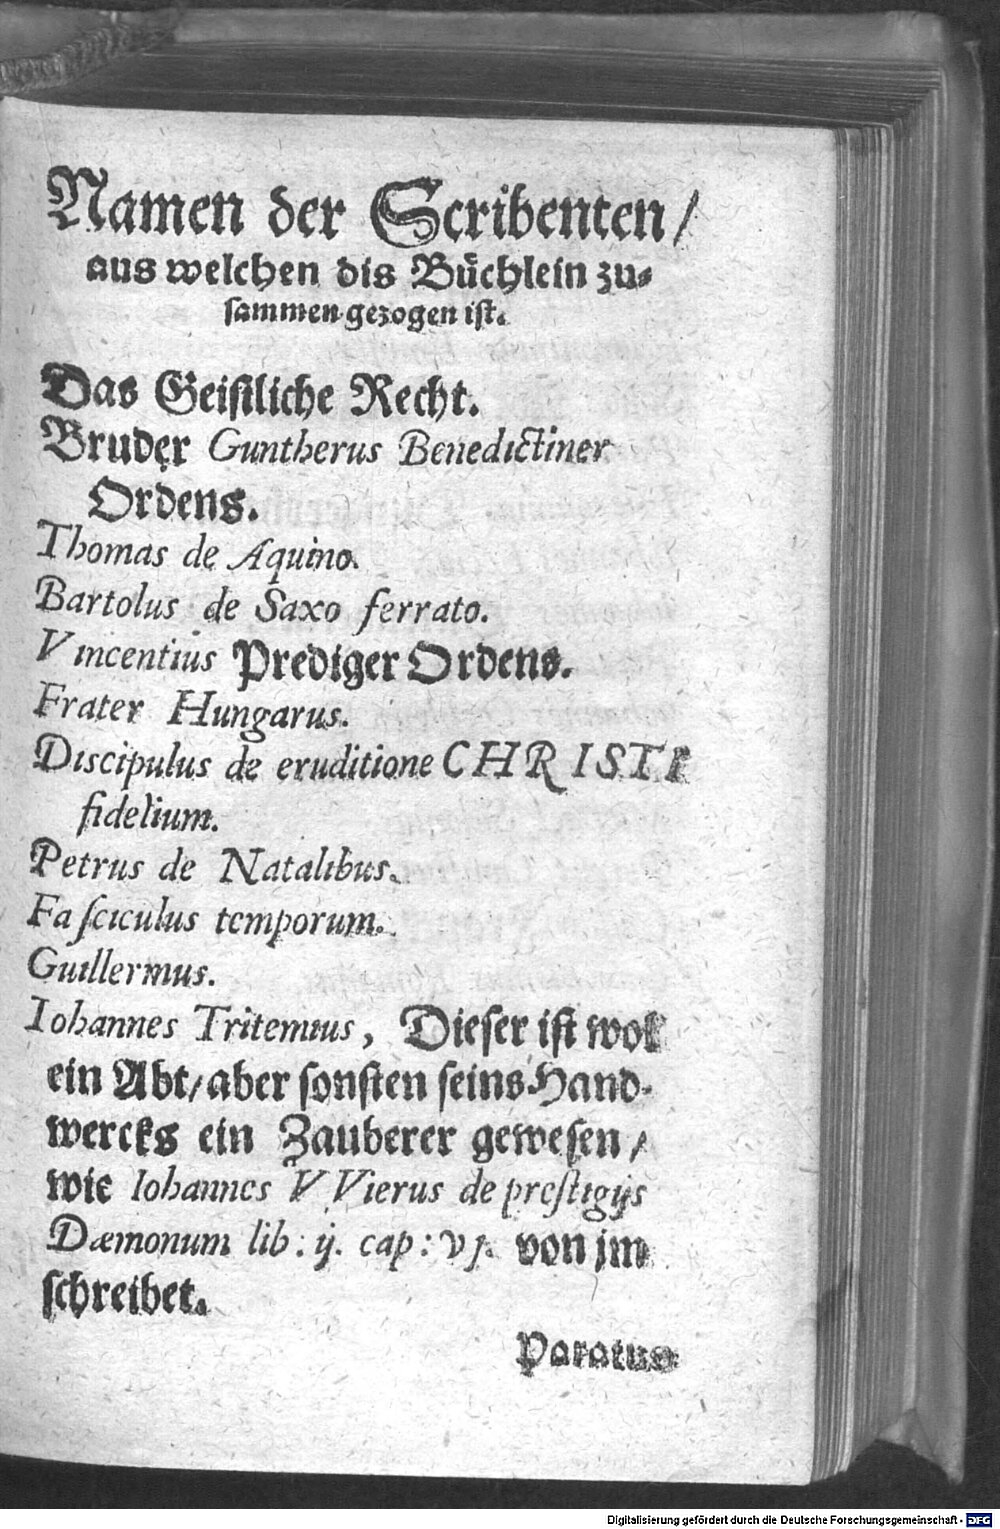 Namen der Scribenten/
aus welchen dis Bůchlein zu⸗
sammen gezogen ist.
Das Geistliche Recht.
Bruder Guntherus Benedictiner
Ordens.
Thomas de Aquino.
Bartolus de Saxo ferrato.
Vincentius Prediger Ordens.
Frater Hungarus.
Discipulus de eruditione CHRISTI
fidelium.
Petrus de Natalibus.
Fasciculus temporum.
Guillermus.
Iohannes Tritemius, Dieser ist wol
ein Abt/aber sonsten seins Hand⸗
wercks ein Zauberer gewesen/
wie Iohannes VVierus de prestigijs
Dæmonum lib: ij. cap: vj. von jm
schreibet.
Paratus
Digitalisierung gefördert durch die Deutsche Forschungsgemeinschaft - DFG